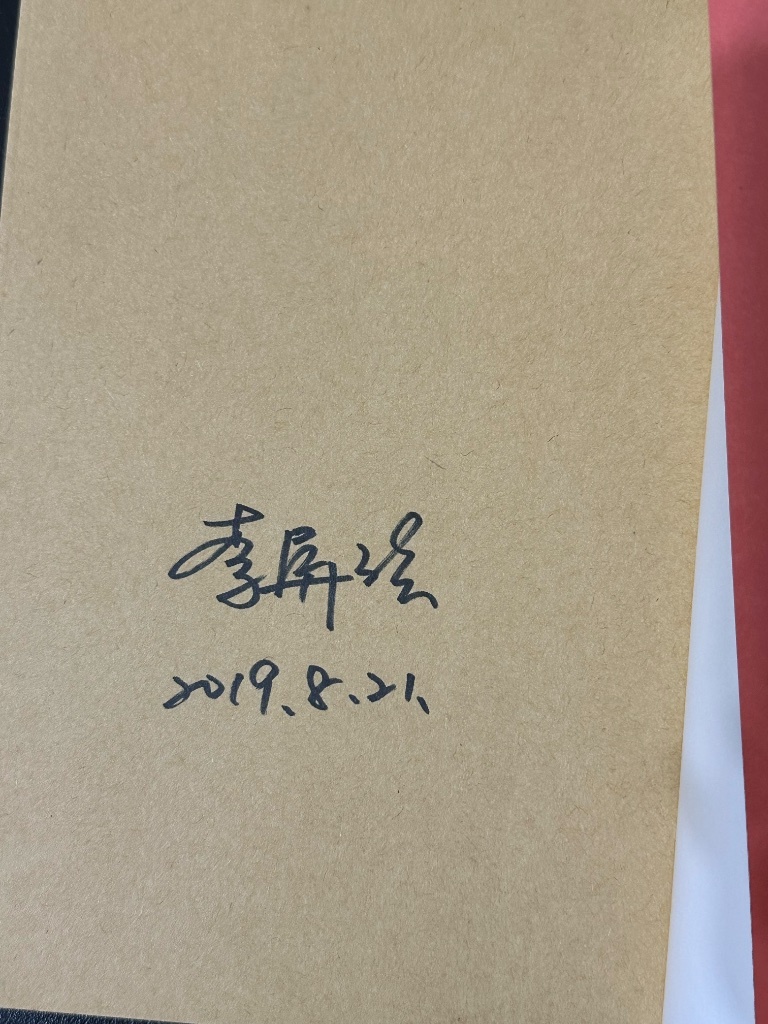 李屏
2019.8.21.